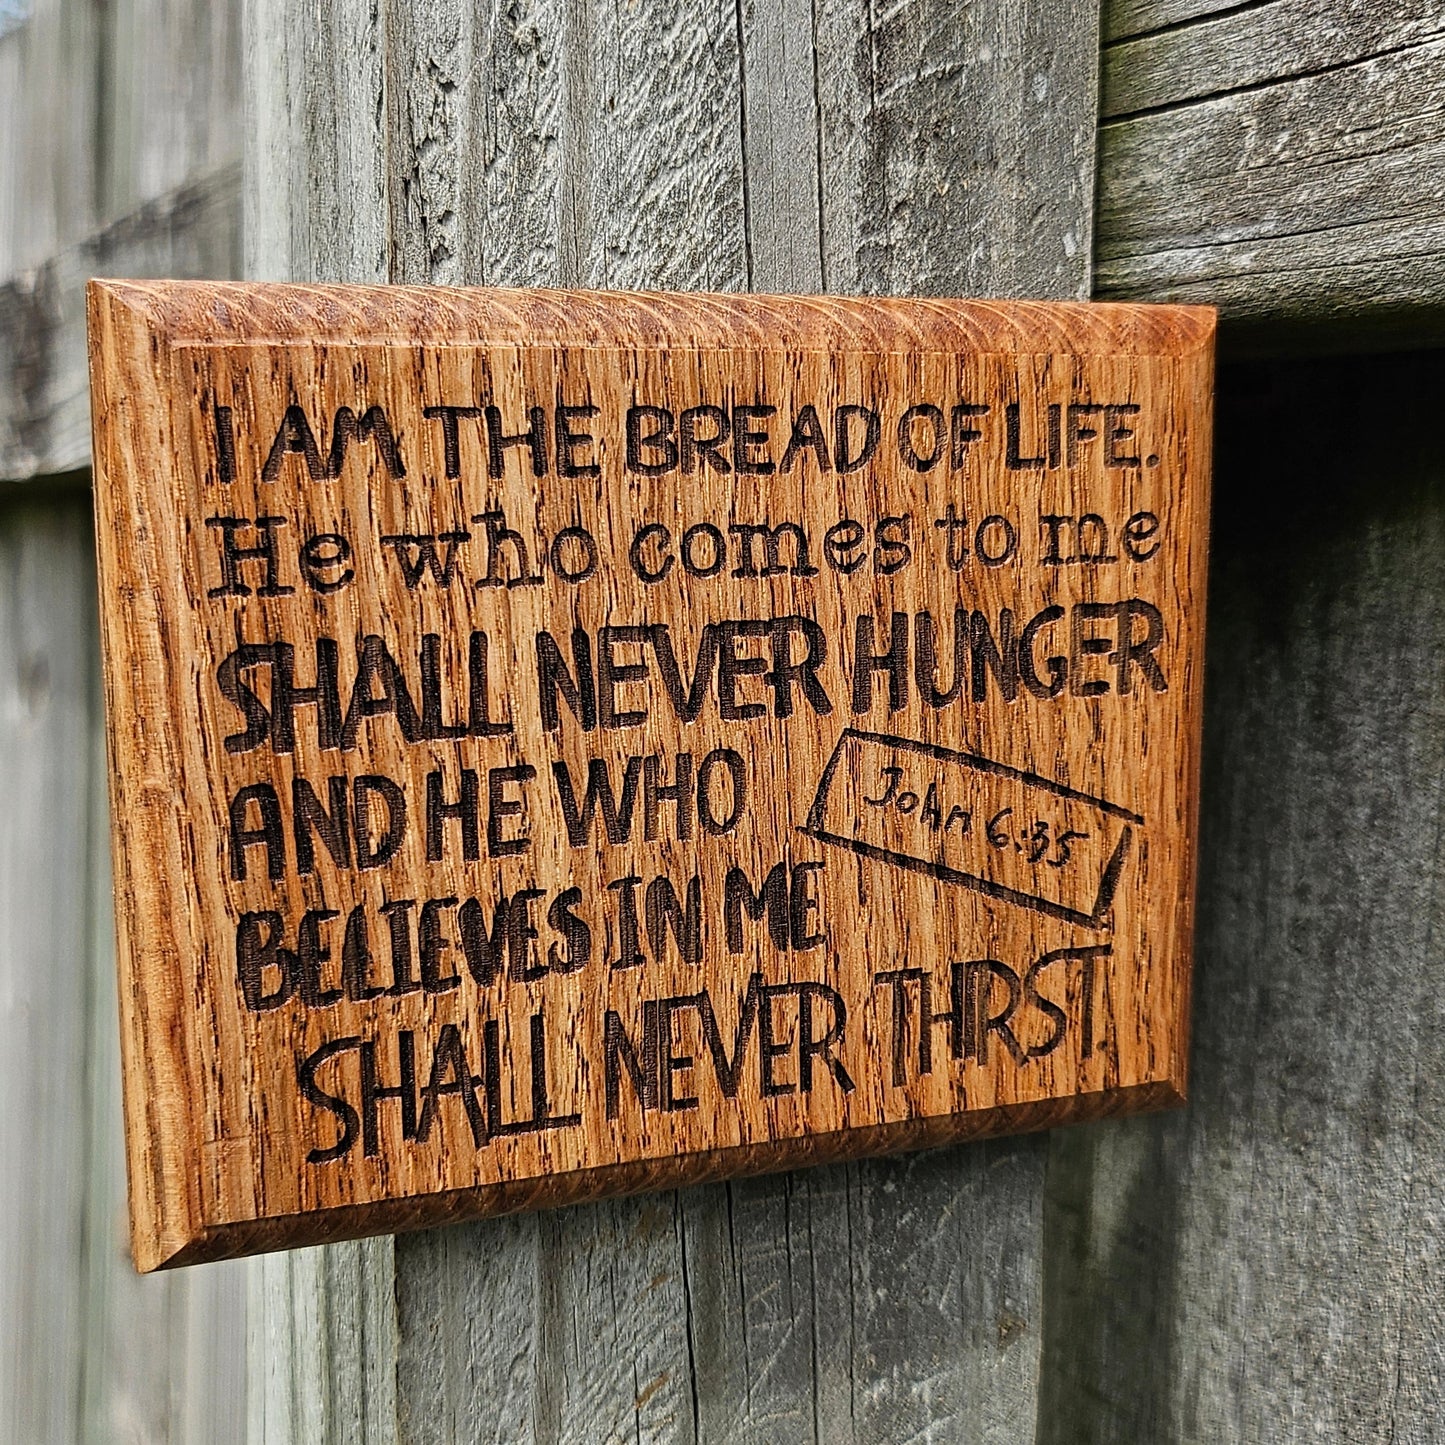 I AM THE BREAD OF LIFE.
He who comes to me
SHALL NEVER HUNGER
AND HE WHO
John 6:35
BELIEVES IN ME
SHALL NEVER THIRST.